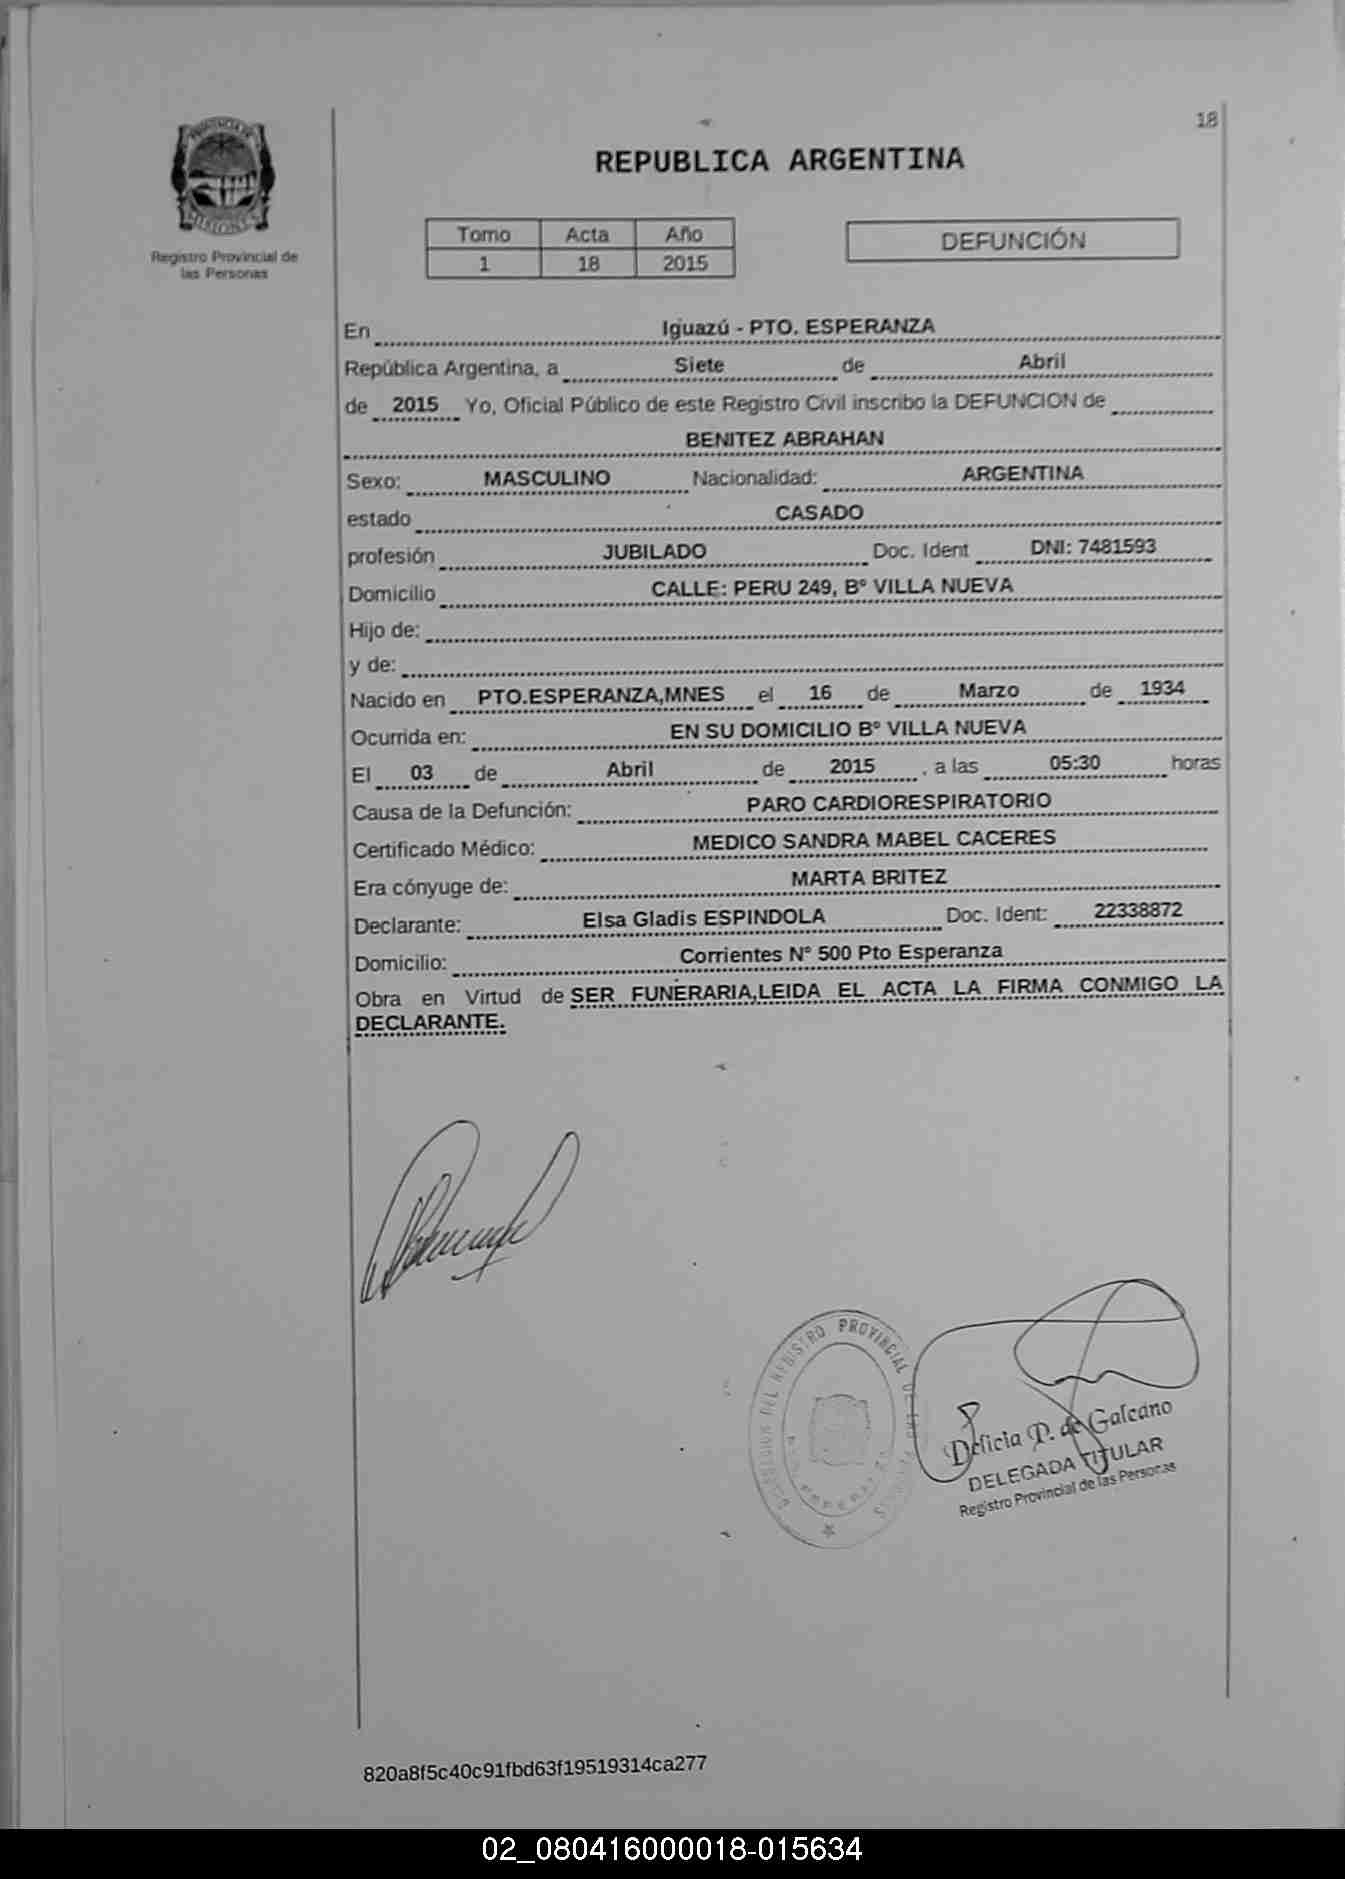 18
PROVINCIA DE
MISIONES
Registro Provincial de
las Personas
REPUBLICA ARGENTINA
Tomo Acta Año
1 18 2015
DEFUNCIÓN
En Iguazú - PTO. ESPERANZA
República Argentina, a Siete de Abril
de 2015 Yo, Oficial Público de este Registro Civil inscribo la DEFUNCION de
BENITEZ ABRAHAN
Sexo: MASCULINO Nacionalidad: ARGENTINA
estado CASADO
profesión JUBILADO Doc. Ident DNI: 7481593
Domicilio CALLE: PERU 249, Bº VILLA NUEVA
Hijo de:
y de:
Nacido en PTO.ESPERANZA,MNES el 16 de Marzo de 1934
Ocurrida en: EN SU DOMICILIO Bº VILLA NUEVA
El 03 de Abril de 2015 , a las 05:30 horas
Causa de la Defunción: PARO CARDIORESPIRATORIO
Certificado Médico: MEDICO SANDRA MABEL CACERES
Era cónyuge de: MARTA BRITEZ
Declarante: Elsa Gladis ESPINDOLA Doc. Ident: 22338872
Domicilio: Corrientes Nº 500 Pto Esperanza
Obra en Virtud de SER FUNERARIA,LEIDA EL ACTA LA FIRMA CONMIGO LA
DECLARANTE.
DEL REGISTRO PROVINCIAL DE LAS
Delicia P. de Galeano
DELEGADA TITULAR
Registro Provincial de las Personas
820a8f5c40c91fbd63f19519314ca277
02_080416000018-015634